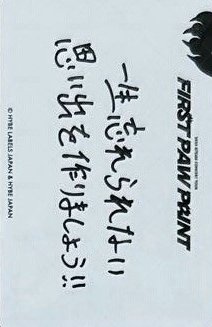 FIRST PAW PRINT
一生忘れられない
思い出を作りましょう!!
© HYBE LABELS JAPAN & HYBE JAPAN